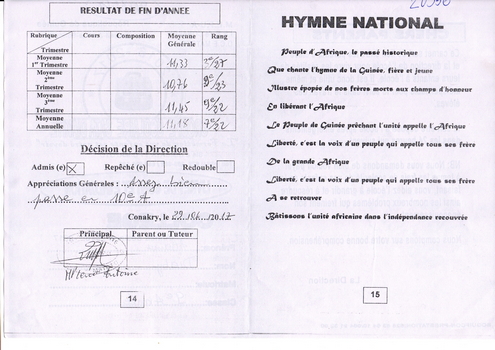 RESULTAT DE FIN D'ANNEE
Rubrique Trimestre Cours Composition Moyenne Générale Rang
Moyenne 1er Trimestre 11,33 2e/27
Moyenne 2ème Trimestre 10,76 9e/23
Moyenne 3ème Trimestre 11,45 9e/22
Moyenne Annuelle 11,18 7e/22
Décision de la Direction
Admis (e) X Repêché (e) Redouble
Appréciations Générales : Assez bien
passe en 10e A
Conakry, le
Principal Parent ou Tuteur
Antoine
14
HYMNE NATIONAL
Peuple d'Afrique, le passé historique
Que chante l'hymne de la Guinée, fière et jeune
Illustre épopée de nos frères morts aux champs d'honneur
En libérant l'Afrique
Le Peuple de Guinée prêchant l'unité appelle l'Afrique
Liberté, c'est la voix d'un peuple qui appelle tous ses frères
De la grande Afrique
Liberté, c'est la voix d'un peuple qui appelle tous ses frères
A se retrouver
Bâtissons l'unité africaine dans l'indépendance recouvrée
15